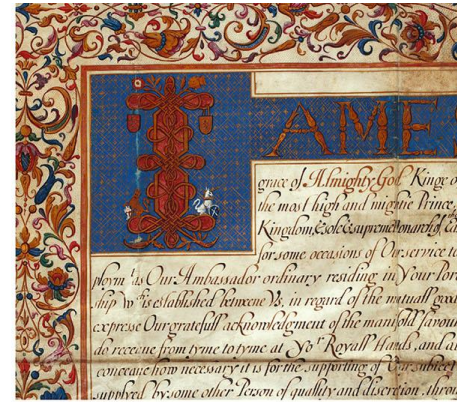 IAMES
grace of Almighty God Kinge o
the most high and mightie Prince,
Kingdom, & sole & supreme monarch of, Ea
for some occasions of Our service to
ploym t as Our Ambassador ordinary residing in Your Por
ship wch is established betweene Vs, in regard of the mutuall good
expresse Our gratefull acknowledgment of the manifold favour
do receive from tyme to tyme at Yor Royall Hands, and a
conceaue how necessary it is for the supporting of Our subiect
supplyed by some other Person of quallity and discretion, throu